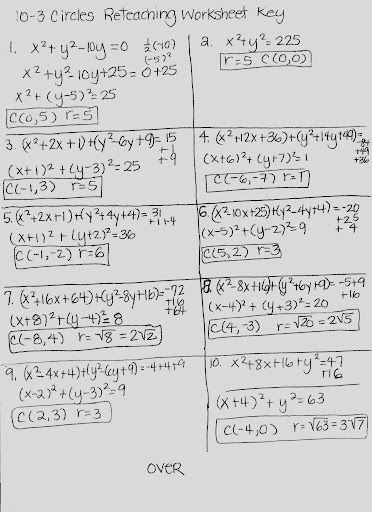 10-3 Circles Reteaching Worksheet Key
1. x²+y²-10y=0 ½(-10)
(-5)²
x²+y²-10y+25=0+25
x²+(y-5)²=25
C(0,5) r=5
2. x²+y²=225
r=5 C(0,0)
3. (x²+2x+1)+(y²-6y+9)=15
+1
+9
(x+1)²+(y-3)²=25
C(-1,3) r=5
4. (x²+12x+36)+(y²+14y+49)=
-84
+49
+36
(x+6)²+(y+7)²=1
C(-6,-7) r=1
5. (x²+2x+1)+(y²+4y+4)=31
+1+4
(x+1)²+(y+2)²=36
C(-1,-2) r=6
6. (x²-10x+25)+(y²-4y+4)=-20
+25
+4
(x-5)²+(y-2)²=9
C(5,2) r=3
7. (x²+16x+64)+(y²-8y+16)=-72
+16
+64
(x+8)²+(y-4)²=8
C(-8,4) r=√8=2√2
8. (x²-8x+16)+(y²+6y+9)=-5+9
+16
(x-4)²+(y+3)²=20
C(4,-3) r=√20=2√5
9. (x²-4x+4)+(y²-6y+9)=-4+4+9
(x-2)²+(y-3)²=9
C(2,3) r=3
10. x²+8x+16+y²=47
+16
(x+4)²+y²=63
C(-4,0) r=√63=3√7
OVER